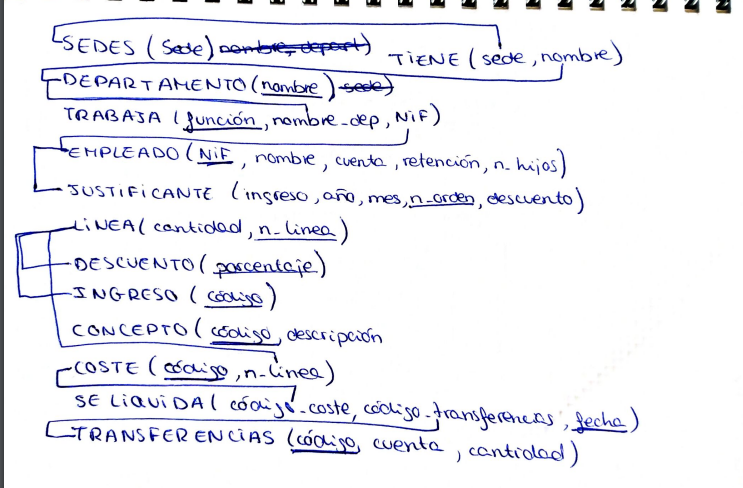 SEDES (Sede) nombre, depart)
TIENE (sede, nombre)
DEPARTAMENTO (nombre) sede)
TRABAJA (función, nombre_dep, NiF)
EMPLEADO (NiF, nombre, cuenta, retención, n_hijos)
JUSTIFICANTE (ingreso, año, mes, n_orden, descuento)
LíNEA( cantidad, n_linea)
DESCUENTO( porcentaje)
INGRESO (código)
CONCEPTO (código, descripción
COSTE (código, n_linea)
SE LiQUiDA( código_coste, código_transferencias, fecha)
TRANSFERENCiAS (código, cuenta, cantidad)